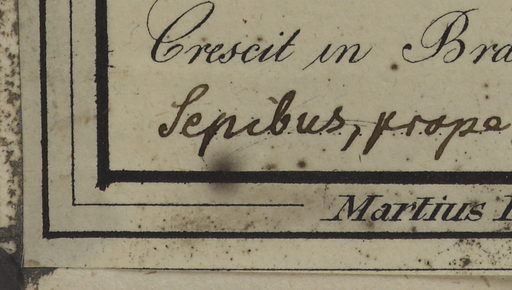 Crescit in
Sepibus, prope
Martius